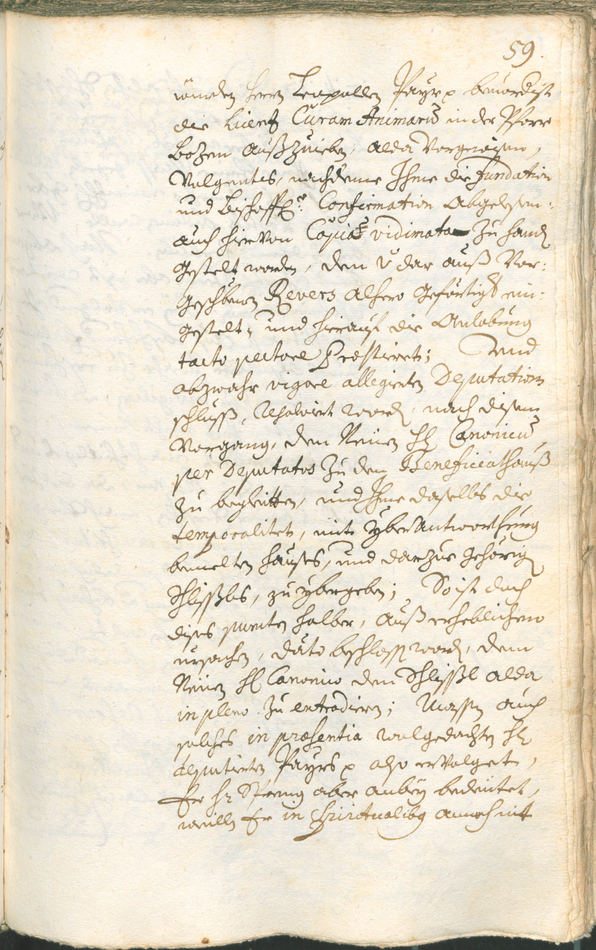 59.
Herrn Leopolden Payr p
die Licenz Curam Animarum in der Pfarr
Bozen außzuieben, alda Vorgewisen,
Volgents, nachdeme Ihme die Fundation
und Bischoffl: Confirmation Abgelesen,
auch hiervon Copia vidimata zu handen
gestelt worden, den daraus Vor:
geschribnen Revers alhero gefertigt ein:
gestelt, und hierauf die Anlobung
tacto pectore Praestiert; Und
obzwahr vigore allegierten Deputation
schluß, resolviert worden, nach disem
Vorgang, den Neuen H: Canonicum
per Deputatos zu dem Beneficiathauß
zu begleiten, und Ihme daselbs die
temporalitet, mit Yberantworthung
bemelten Hauses, und darzue gehörigen
Schlißls, zu ybergeben; So ist doch
dises halber, auß erheblichen
ursachen, dato beschlossen worden, dem
Neuen H: Canonico den Schlißl alda
in pleno zu extradiern; Massen auch
solches in praesentia wolgedachten H:
deputierten Payrs p also ervolgete,
Er H: aber anbey bedeitet,
weillen Er in Spiritualibus annoch nit